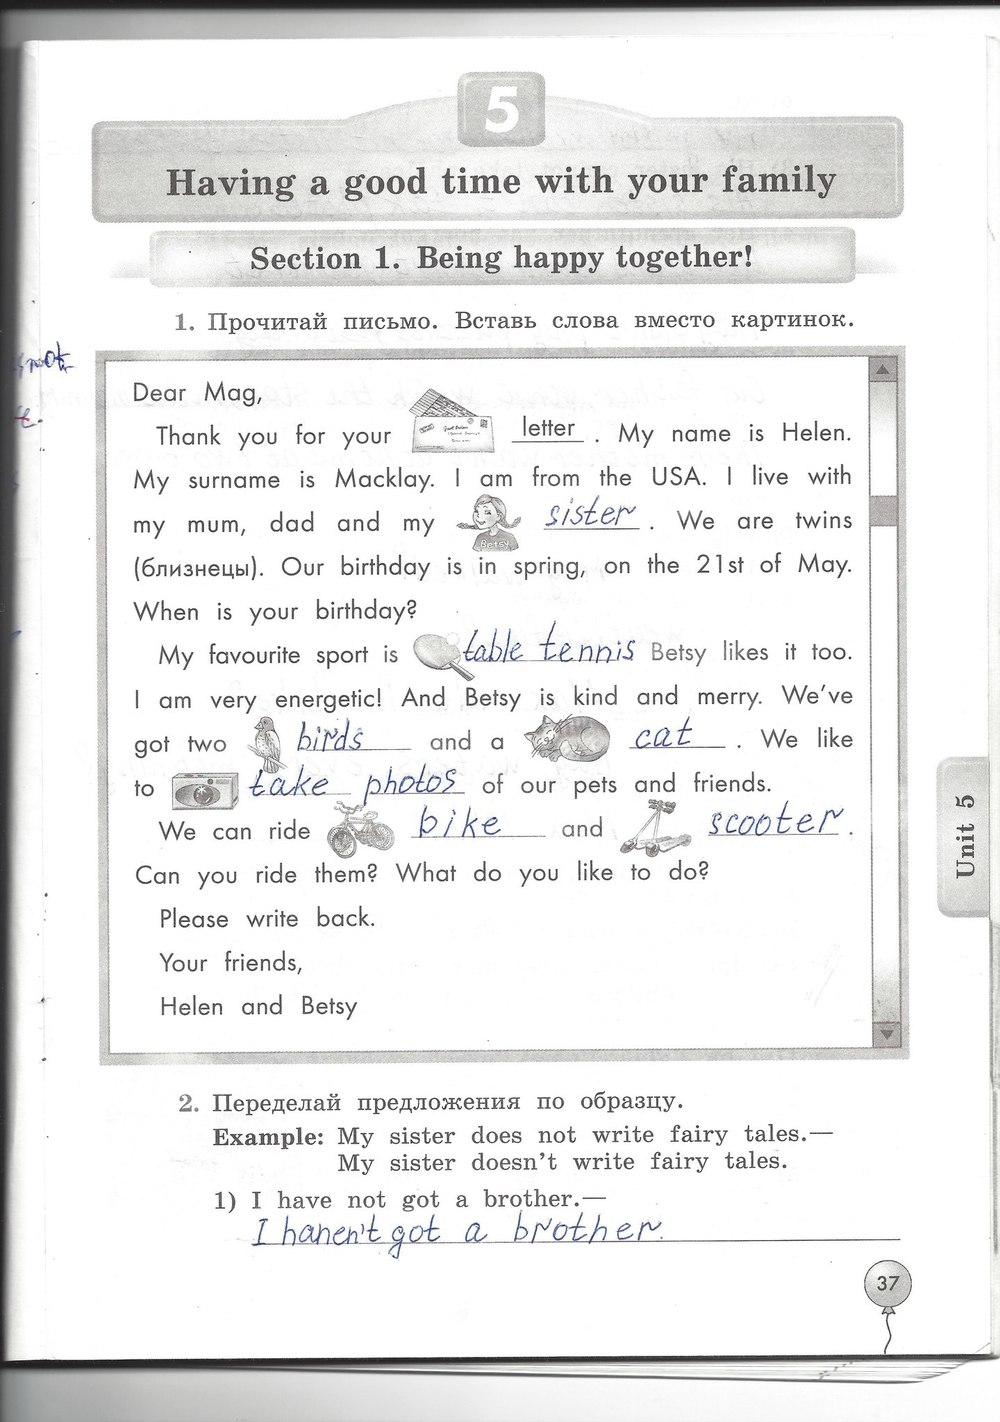 5
Having a good time with your family
Section 1. Being happy together!
1. Прочитай письмо. Вставь слова вместо картинок.
Dear Mag,
Thank you for your letter. My name is Helen.
My surname is Macklay. I am from the USA. I live with
my mum, dad and my Betsy sister. We are twins
(близнецы). Our birthday is in spring, on the 21st of May.
When is your birthday?
My favourite sport is table tennis Betsy likes it too.
I am very energetic! And Betsy is kind and merry. We've
got two birds and a cat. We like
to take photos of our pets and friends.
We can ride bike and scooter.
Can you ride them? What do you like to do?
Please write back.
Your friends,
Helen and Betsy
2. Переделай предложения по образцу.
Example: My sister does not write fairy tales.—
My sister doesn't write fairy tales.
1) I have not got a brother.—
I hanen't got a brother.
Unit 5
37